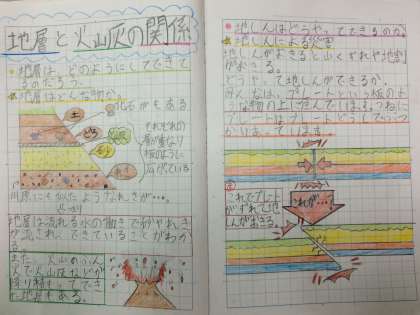 地層と火山灰の関係
地層は、どのようにしてできて
いるのだろう
地層はどんな物か。
化石がある
土
それぞれの
層が重なり
板のように
広がっている
川原にも似たようなれきが…。
地層は流れる水の働きで砂やれき
が流され、できていることがわか
る
また、火山のふん
火で火山灰などが
降り積もってでき
た地層もある。
地しんはどうやってできるのか
地しんによる災害
地しんがおきると山くずれや地割
れがおきる。
どうやって地しんができるか。
みんなは、プレートという板のよ
うな物の上に住んでいる。
プレートとプレートどうしでぶつ
かりあってしまう
これが…
これでプレート
がずれて地し
んがおきる。